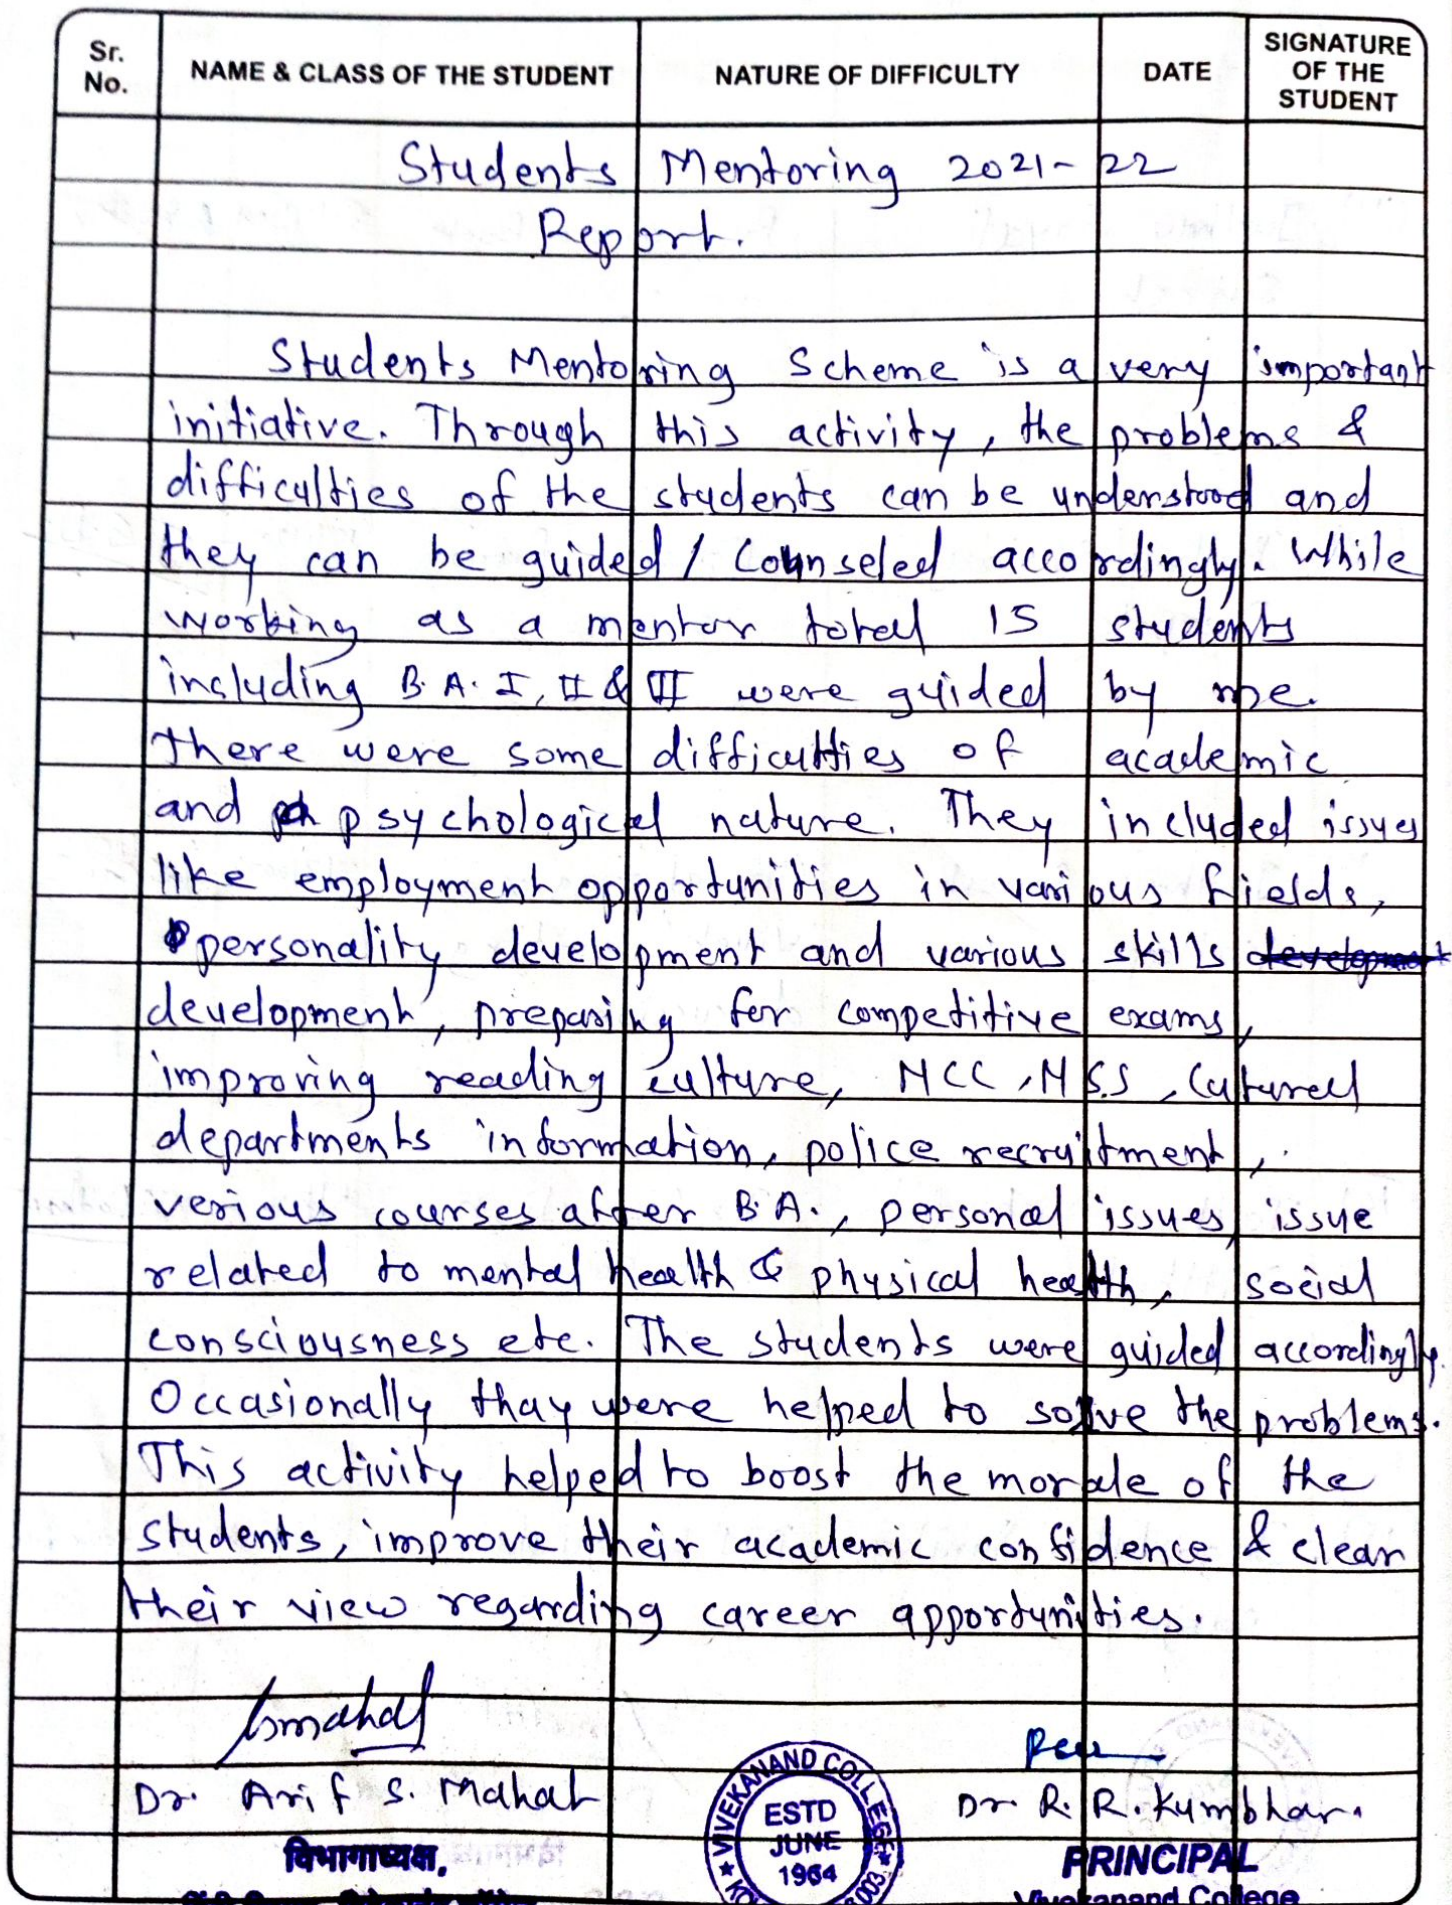 Sr. No.
NAME & CLASS OF THE STUDENT
NATURE OF DIFFICULTY
DATE
SIGNATURE OF THE STUDENT
Students Mentoring 2021-22
Report.
Students Mentoring Scheme is a very important
initiative. Through this activity, the problems &
difficulties of the students can be understood and
they can be guided / Counseled accordingly. While
working as a mentor total 15 students
including B.A. I, II & II were guided by me.
There were some difficulties of academic
and psychological nature. They included issues
like employment opportunities in various fields,
personality development and various skills development
development, preparing for competitive exams,
improving reading culture, NCC, NSS, Cutural
departments information, police recruitment,
verious courses after B.A., personal issues, issue
related to mental health & physical health, social
consciousness etc. The students were guided accordingly.
Occasionally thay were helped to solve the problems.
This activity helped to boost the morale of the
students, improve their academic confidence & clear
their view regarding career opportunities.
Dr. Arif S. Mahat
Dr. R. R. Kumbhar.
विभागाध्यक्ष,
VIVEKANAND COLLEGE
ESTD
JUNE
1964
PRINCIPAL
Vivekanand College